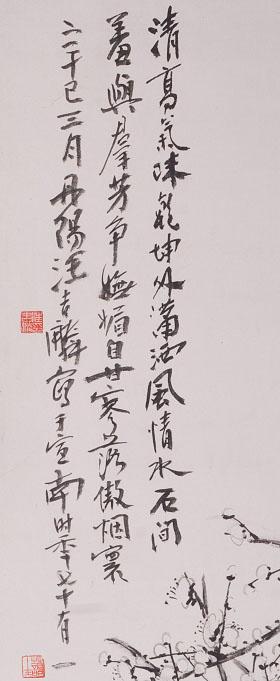 清高氣味乾坤外瀟洒風情水石間
羞與群芳爭嫵媚自甘寥落傲烟寰
丁巳三月丹陽汪吉麟寫于宣南時季七十有一